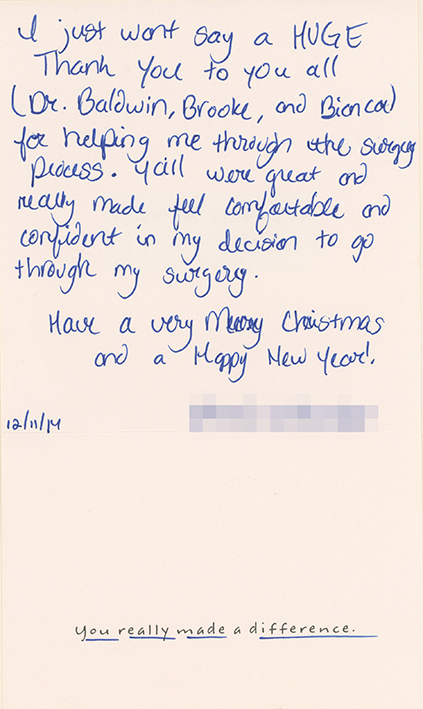 I just want say a HUGE
Thank You to you all
(Dr. Baldwin, Brooke, and Bianca)
for helping me through the surgery
process. Ya'll were great and
really made feel comfortable and
confident in my decision to go
through my surgery.
Have a very Merry Christmas
and a Happy New Year!
12/11/14
You really made a difference.